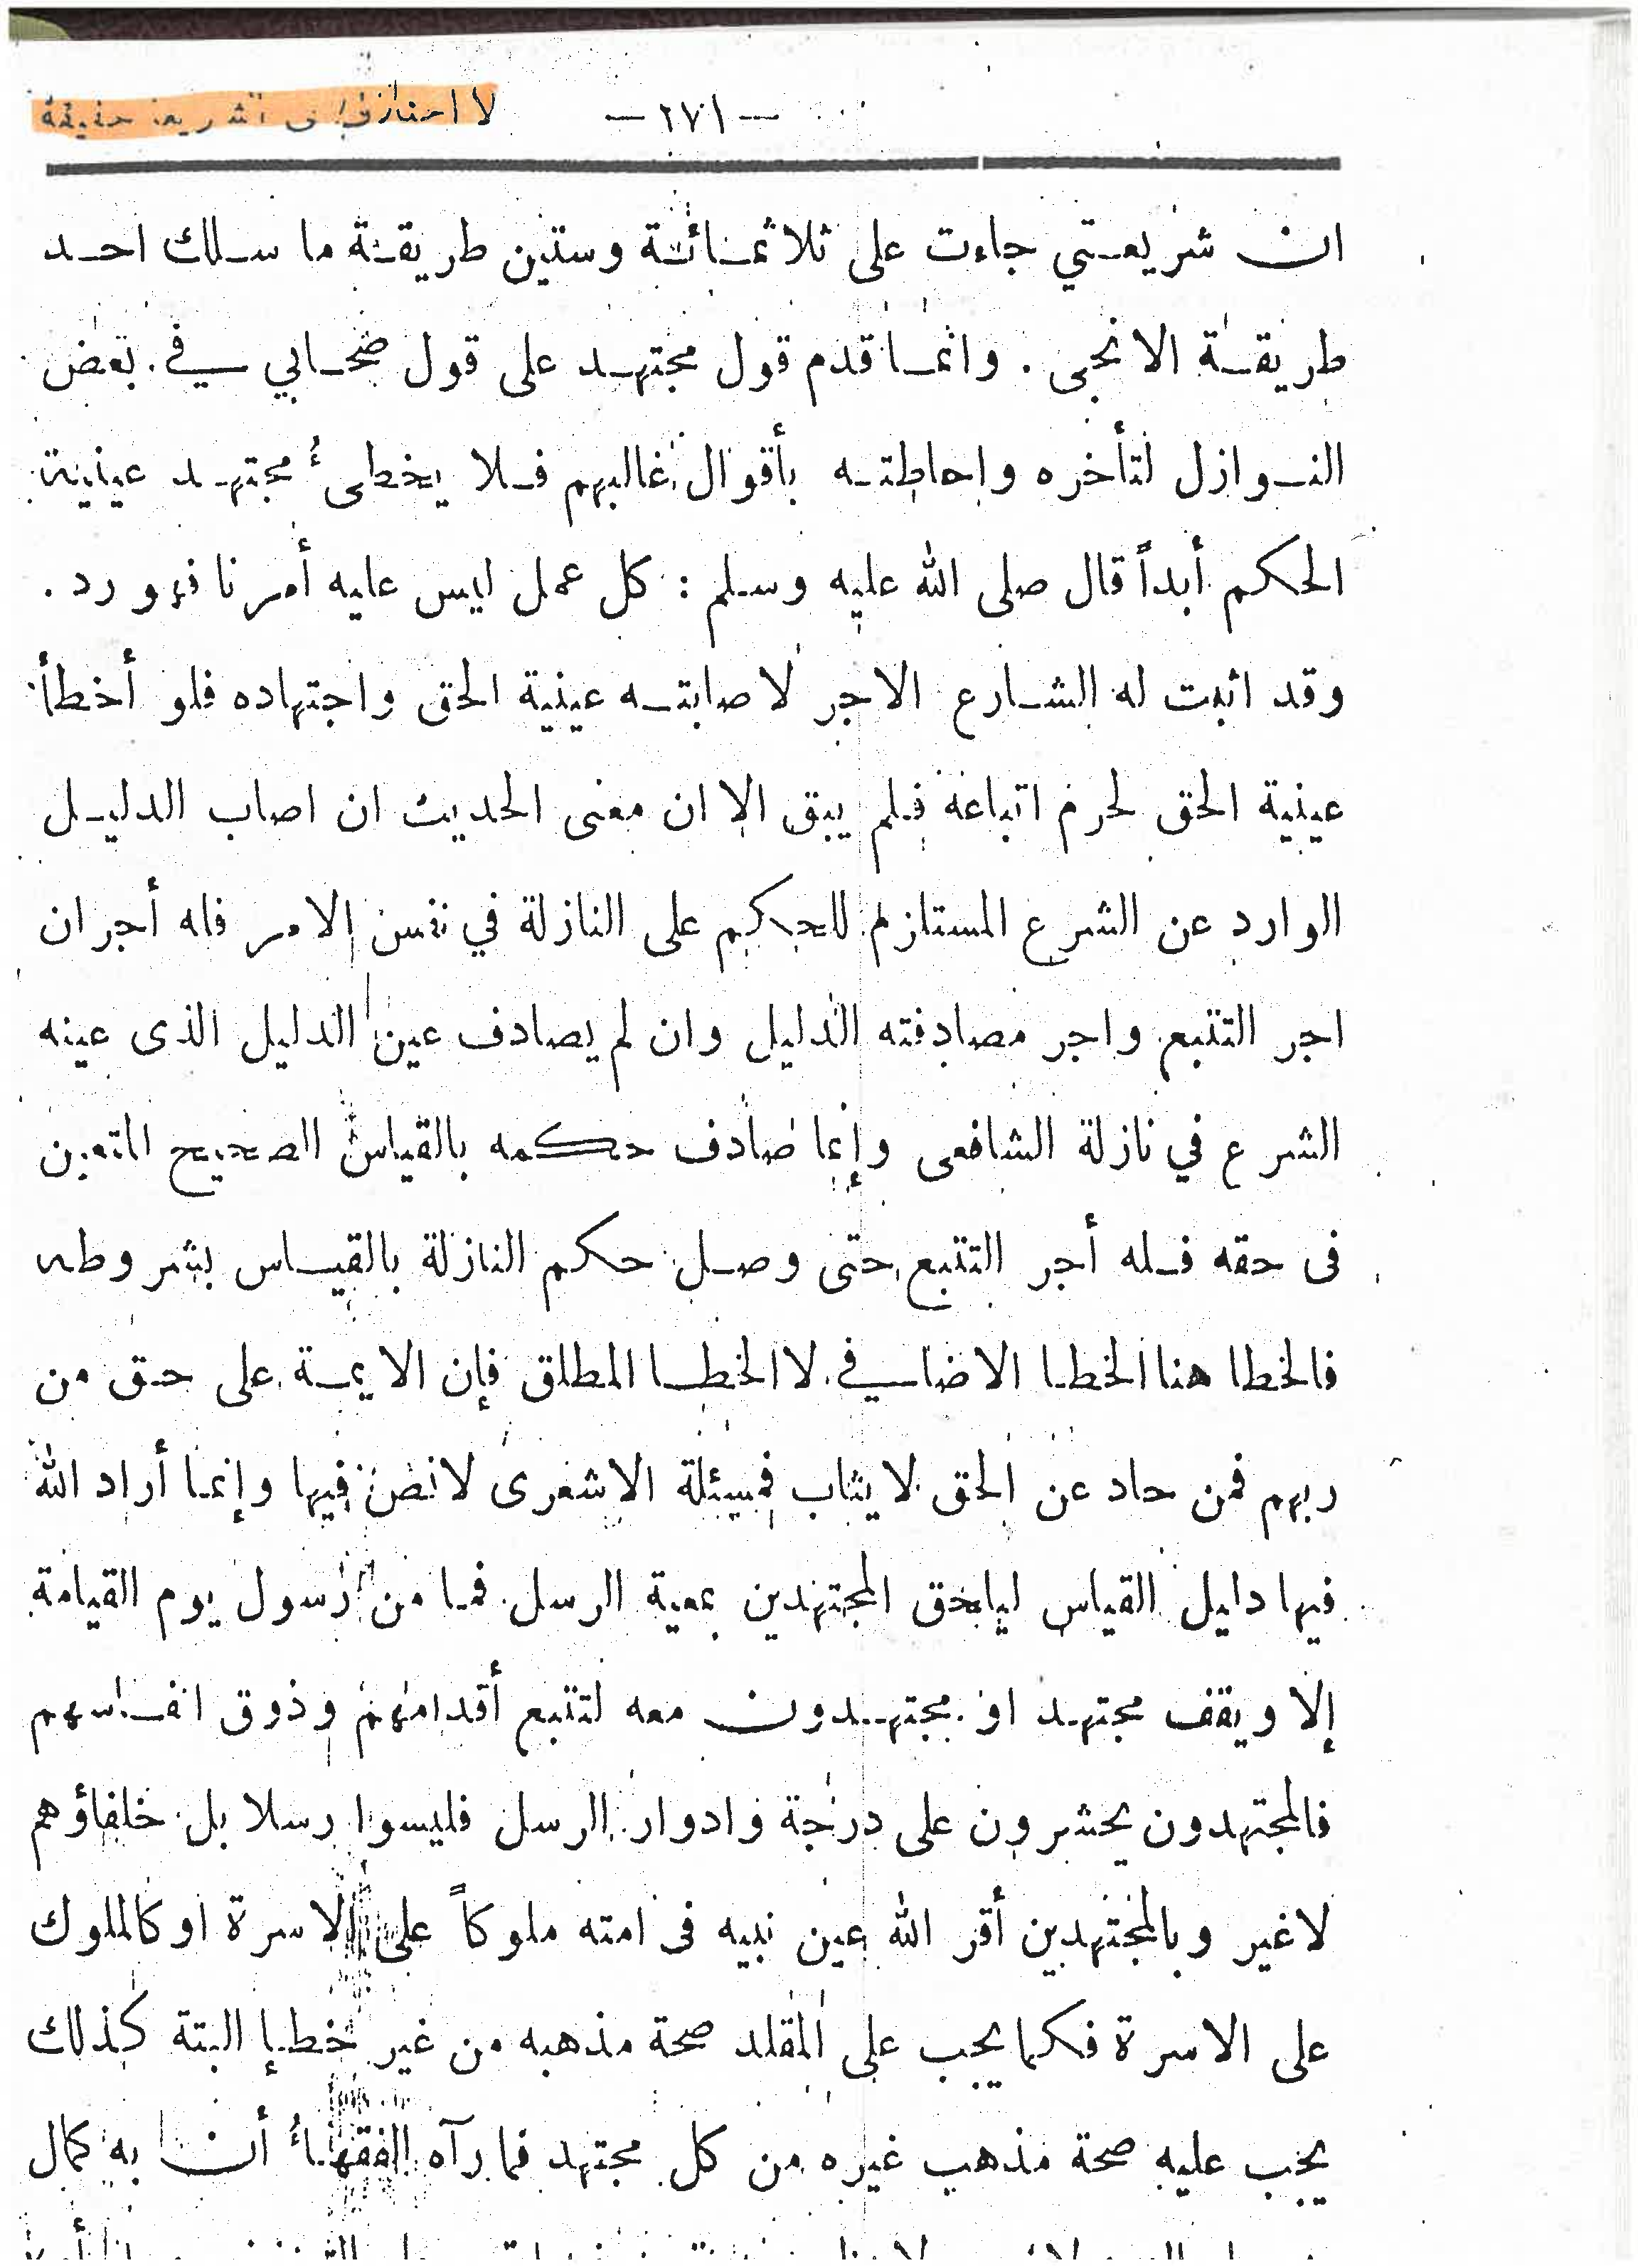 لا اختلاف في الشريعة حقيقة
— ٢٧١ —
ان شريعتي جاءت على ثلاثمائة وستين طريقة ما سلك احد
طريقة الا نجى . وانما قدم قول مجتهد على قول صحابي في بعض
النوازل لتأخره واحاطته بأقوال غالبهم فلا يخطىءُ مجتهد عينية
الحكم أبداً قال صلى الله عليه وسلم : كل عمل ليس عليه أمرنا فهو رد .
وقد اثبت له الشارع الاجر لاصابته عينية الحق واجتهاده فلو أخطأ
عينية الحق لحرم اتباعه فلم يبق الا ان معنى الحديث ان اصاب الدليل
الوارد عن الشرع المستلزم للحكم على النازلة في نفس الامر فله أجران
اجر التتبع واجر مصادفته الدليل وان لم يصادف عين الدليل الذى عينه
الشرع في نازلة الشافعى وإنما صادف حكمه بالقياس الصحيح المتعين
فى حقه فله أجر التتبع حتى وصل حكم النازلة بالقياس بشروطه
فالخطا هنا الخطا الاضافي لا الخطا المطلق فإن الايمة على حق من
ربهم فمن حاد عن الحق لا يثاب فمسئلة الاشعرى لا نص فيها وإنما أراد الله
فيها دليل القياس ليلحق المجتهدين بمعية الرسل فما من رسول يوم القيامة
إلا ويقف مجتهد او مجتهدون معه لتتبع أقدامهم وذوق انفاسهم
فالمجتهدون يحشرون على درجة وادوار الرسل فليسوا رسلا بل خلفاؤهم
لاغير وبالمجتهدين أقر الله عين نبيه فى امته ملوكاً على الاسرة او كالملوك
على الاسرة فكما يجب على المقلد صحة مذهبه من غير خطإ البتة كذلك
يجب عليه صحة مذهب غيره من كل مجتهد فما رآه الفقهاءُ أن به كمال